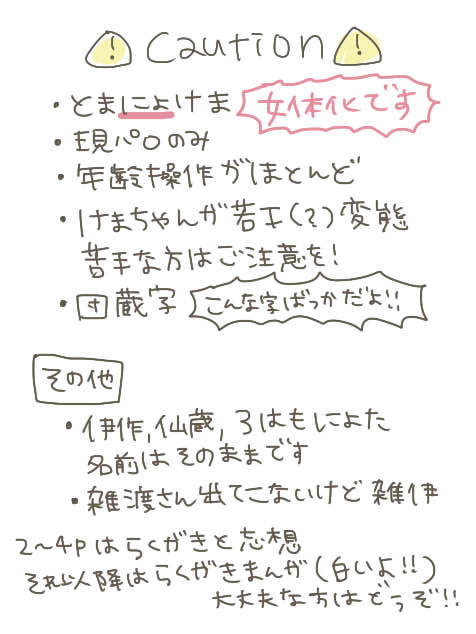 ! Caution !
・とまにょけま 女体化です
・現パロのみ
・年齢操作がほとんど
・けまちゃんが若干(?)変態
苦手な方はご注意を!
・図蔵字 こんな字ばっかだよ!!
その他
・伊作,仙蔵,ろはもにょた
名前はそのままです
・雑渡さん出てこないけど雑伊
2〜4Pはらくがきと忘想
それ以降はらくがきまんが(白いよ!!)
大丈夫な方はどうぞ!!